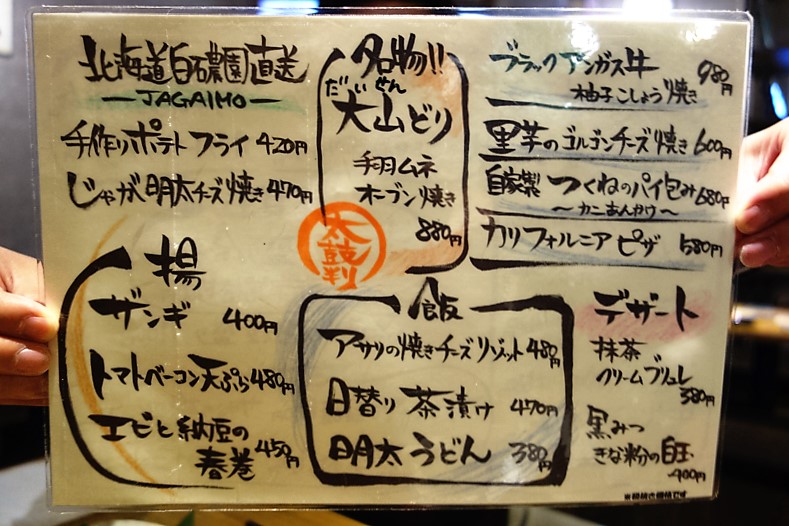 北海道白石農園直送
JAGAIMO
手作りポテトフライ 420円
じゃが明太チーズ焼き 470円
名物!!
だいせん
大山どり
手羽ムネ
オーブン焼き
880円
太鼓判
ブラックアンガス牛 980円
柚子こしょう焼き
里芋のゴルゴンチーズ焼き 600円
自家製 つくねのパイ包み 680円
〜カニあんかけ〜
カリフォルニアピザ 580円
揚
ザンギ 400円
トマトベーコン天ぷら 480円
エビと納豆の
春巻 450円
飯
アサリの焼きチーズリゾット 480円
日替り茶漬け 470円
明太うどん 380円
デザート
抹茶
クリームブリュレ
380円
黒みつ
きな粉の白玉
400円